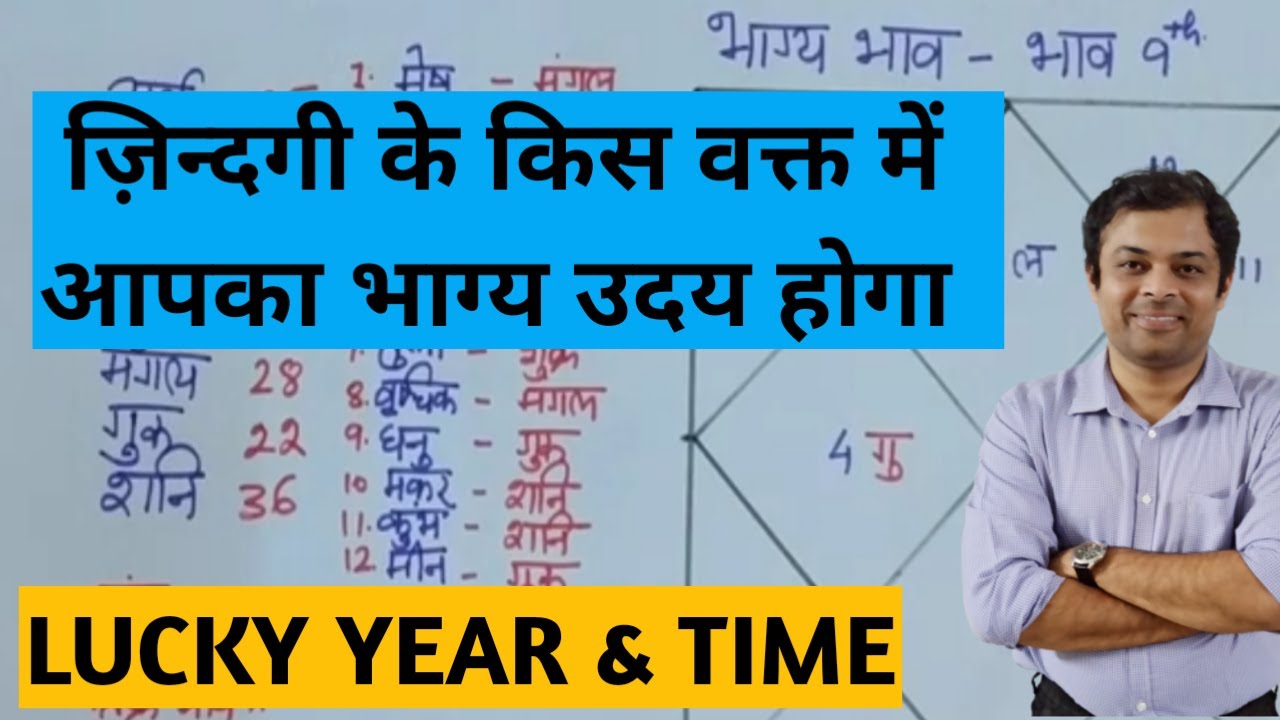 भाग्य भाव - भाव 9th.
1. मेष - मंगल
ज़िन्दगी के किस वक्त में
आपका भाग्य उदय होगा
ल
11
मंगल 28
8. वृश्चिक - मंगल
गुरु 22
9. धनु - गुरु
4 गु
शनि 36
10 मकर - शनि
11. कुंभ - शनि
12. मीन - गुरु
LUCKY YEAR & TIME